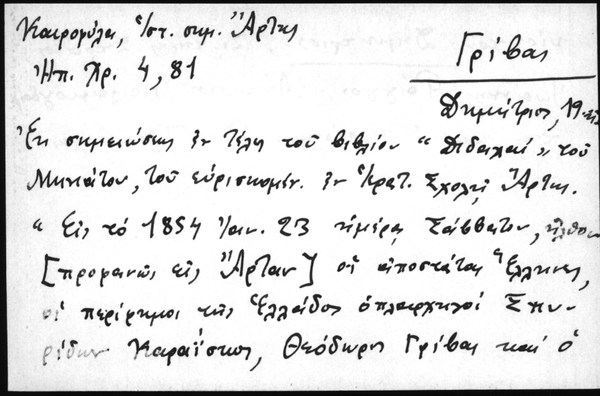 Καιρομύλη, Ἱστ. σημ. Ἄρτης
Ἠπ. Χρ. 4, 81
Γρίβας
Δημήτριος, 19
Ἐκ σημειώσεως ἐν τέλει τοῦ βιβλίου "Διδαχαί" τοῦ
Μηνιάτου, τοῦ εὑρισκομέν. ἐν Κρατ. Σχολῇ Ἄρτης.
"Εἰς τό 1854 Ἰαν. 23 ἡμέρα Σάββατον, ἦλθον
[προφανῶς εἰς Ἄρταν] οἱ ἀποστάται Ἕλληνες,
οἱ περίφημοι τῆς Ἑλλάδος ὁπλαρχηγοί Σπυ-
ρίδων Καραΐσκος, Θεόδωρος Γρίβας καί ὁ